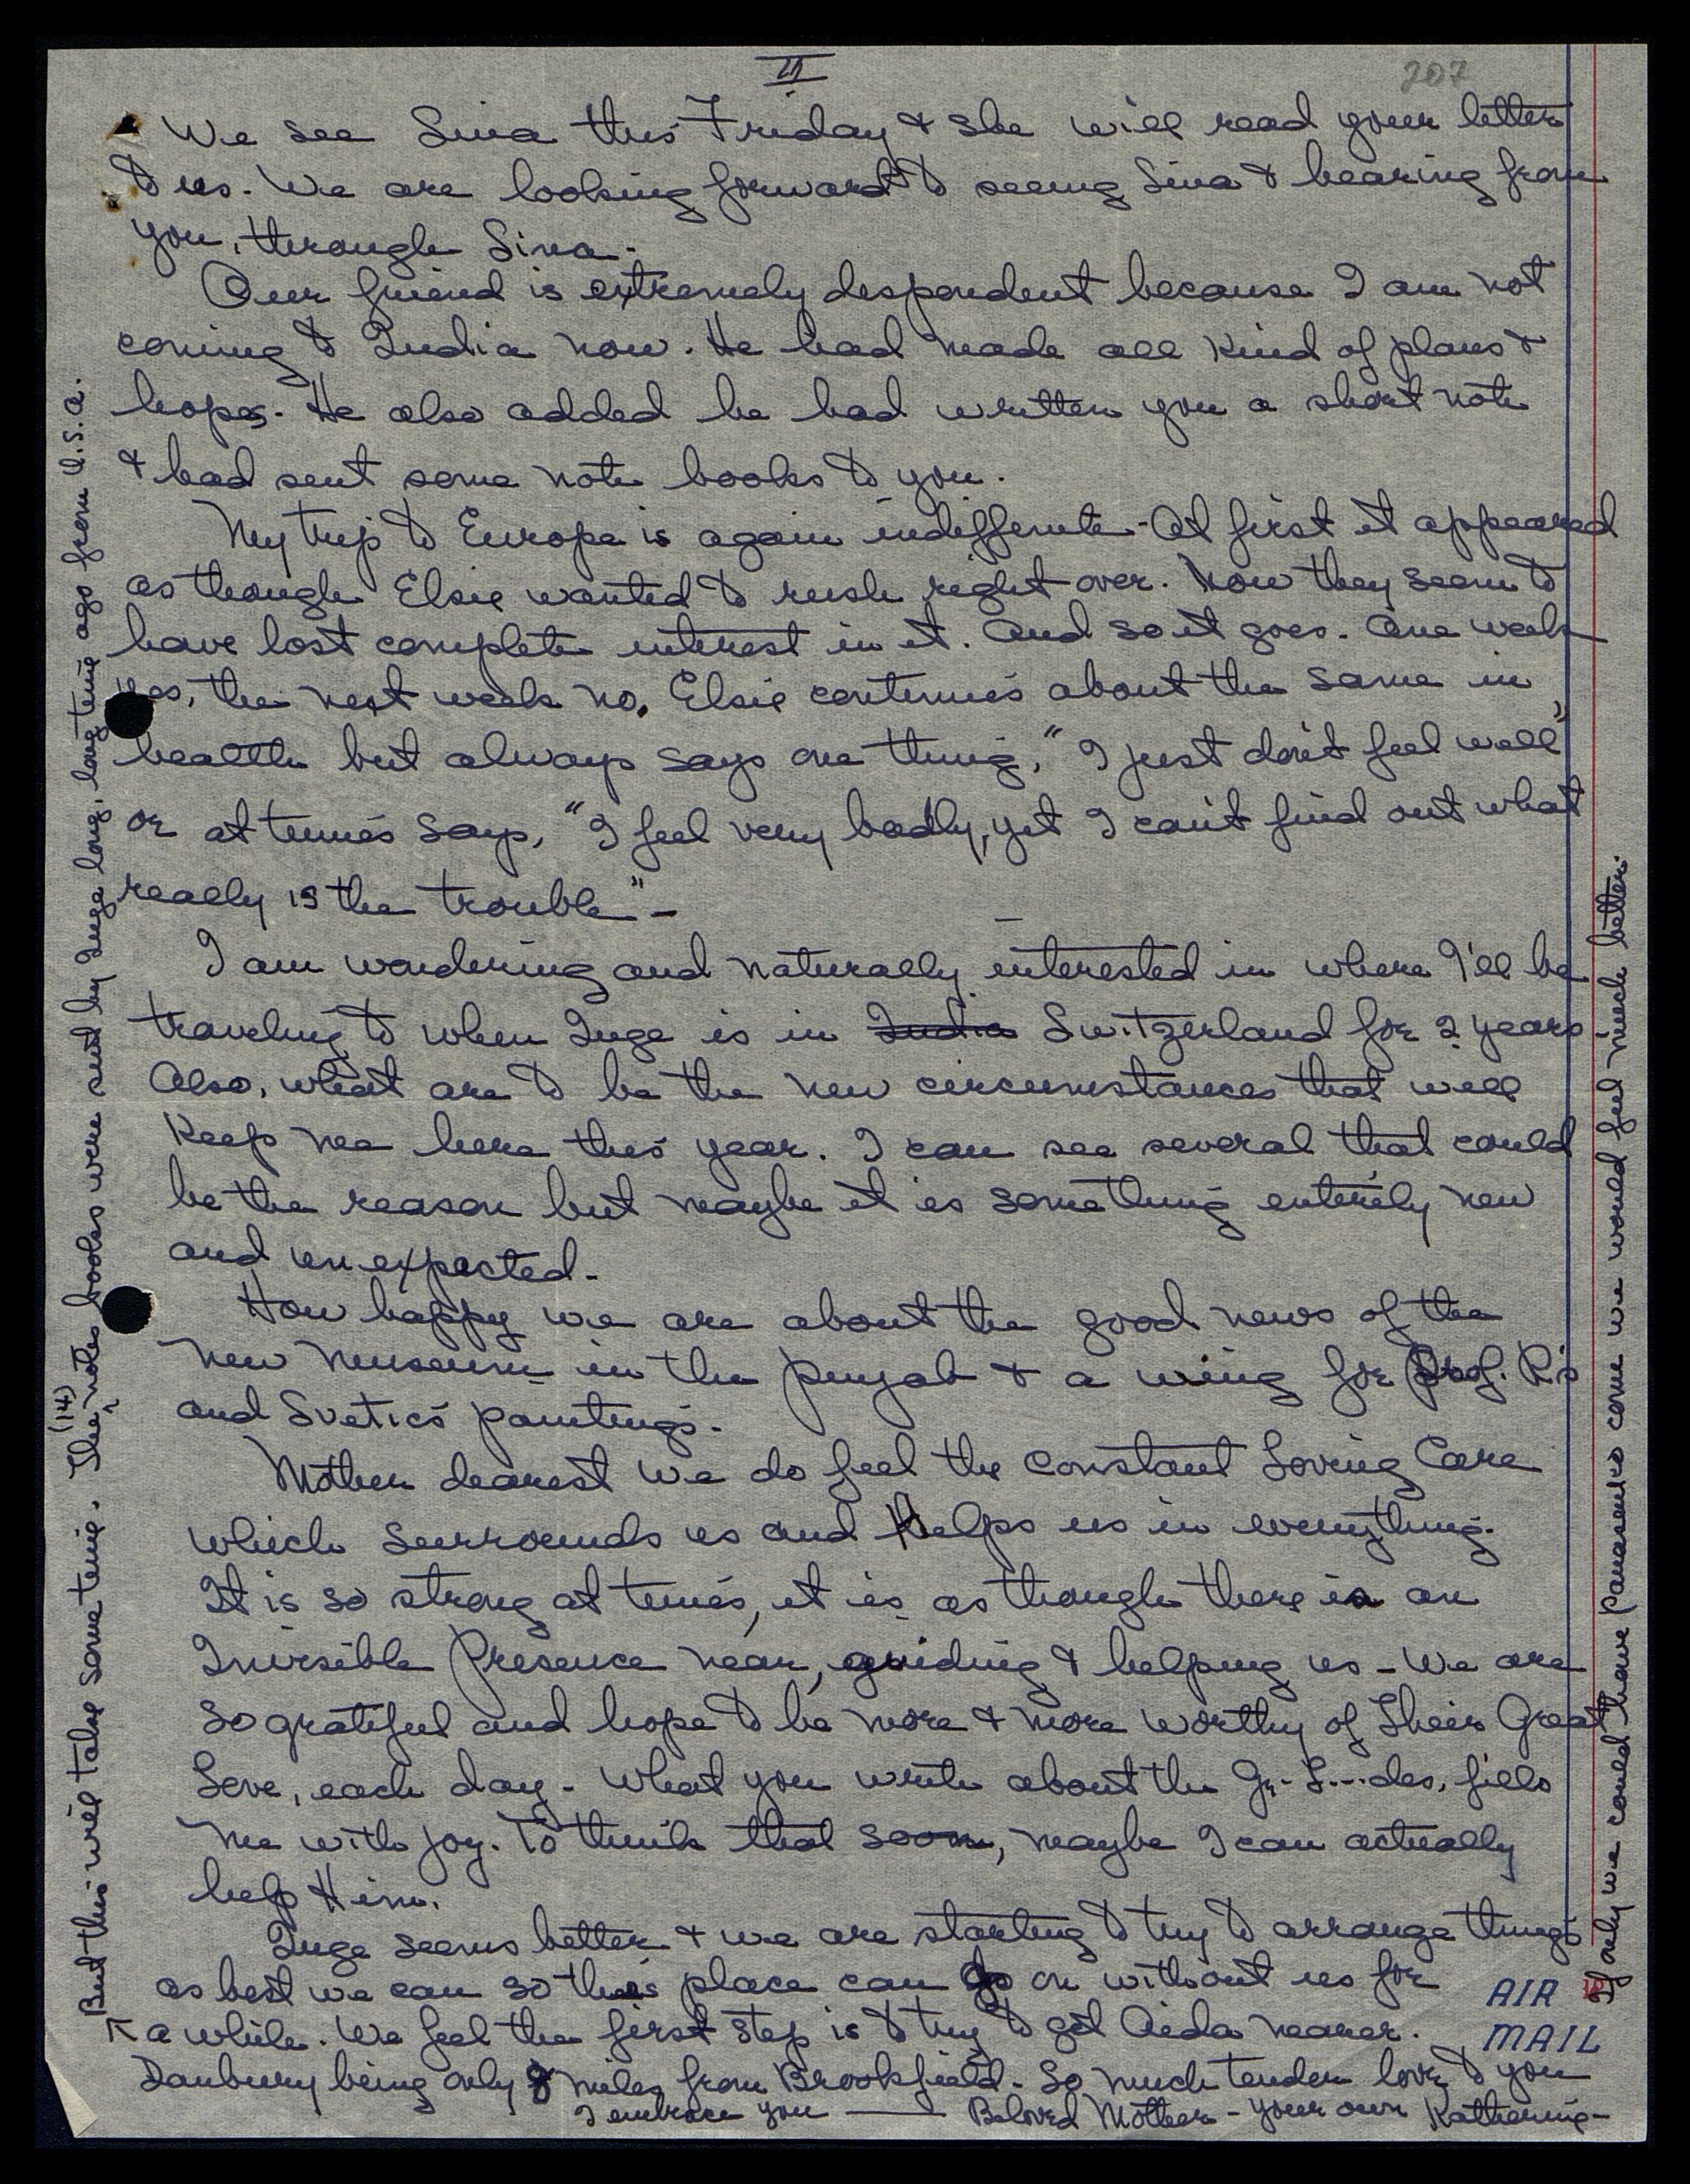 II
207
We see Sina this Friday & she will read your letter
to us. We are looking forward to seeing Sina & hearing from
you, through Sina.
Our friend is extremely despondent because I am not
coming to India now. He had made all kind of plans &
hopes. He also added he had written you a short note
& had sent some note books to you.
My trip to Europe is again indifferente - At first it appeared
as though Elsie wanted to rush right over. Now they seem to
have lost complete interest in it. And so it goes. One week
yes, the next week no. Elsie continues about the same in
health but always says one thing, "I just don't feel well"
or at times says, "I feel very badly, yet I can't find out what
really is the trouble" -
I am wondering and naturally interested in where I'll be
traveling to when Inge is in India Switzerland for 2 years
Also, what are to be the new circumstances that will
keep me here this year. I can see several that could
be the reason but maybe it is something entirely new
and unexpected.
How happy we are about the good news of the
new museum in the Punjab & a wing for Prof. R's
and Svetic's paintings.
Mother dearest we do feel the constant Loving Care
which surrounds us and Helps us in everything.
It is so strong at times, it is as though there is an
Invisible Presence near, guiding & helping us - We are
so grateful and hope to be more & more worthy of Their Great
Love, each day. What you write about the G.. L...des, fills
me with joy. To think that soon, maybe I can actually
help Him.
Inge seems better & we are starting to try to arrange things
as best we can so this place can go on without us for
a while. We feel the first step is to try to get Aida nearer.
Danbury being only 8 miles from Brookfield. So much tender love to you
I embrace you — Beloved Mother - your own Katherine -
AIR
MAIL
But this will take some time. The (14) note books were sent by Inge long, long time ago from U.S.A.
If only we could have Panasenko come we would feel much better.